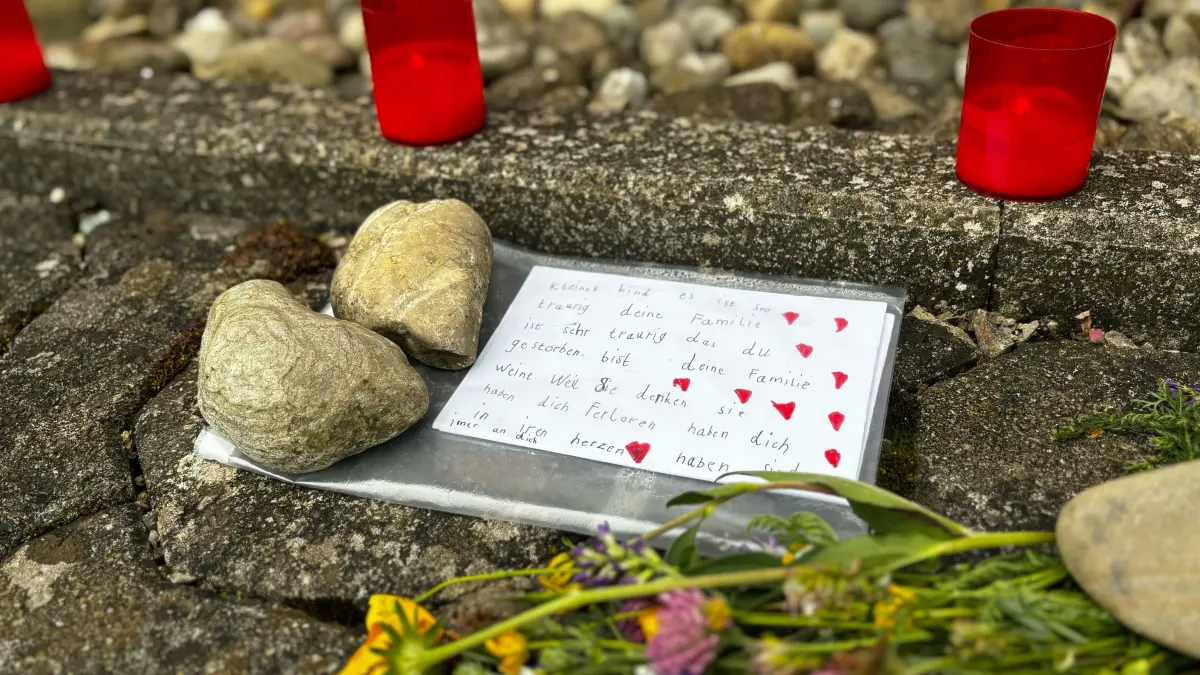 Kleines kind es ist soo
traurig deine Familie
ist sehr traurig das du
gestorben. bist deine Familie
weint Weil Sie denken sie
haben dich Ferloren haben dich
in iren herzen haben sind
imer an dich